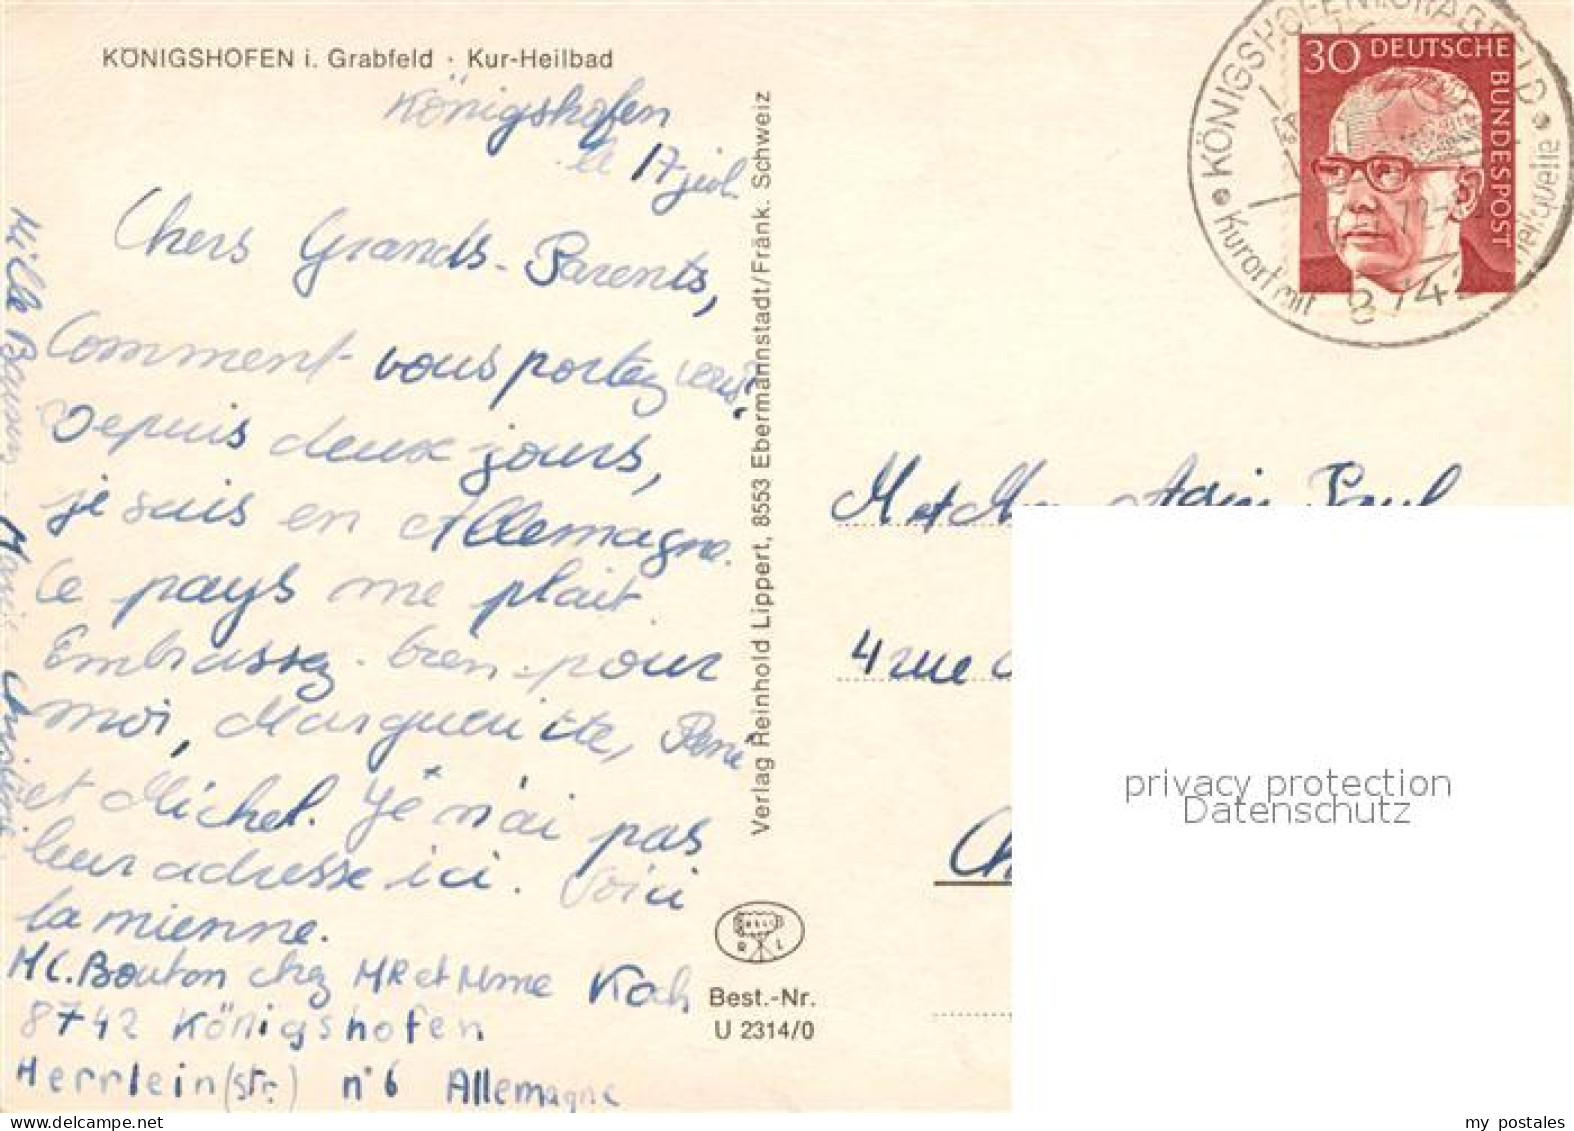 KÖNIGSHOFEN i. Grabfeld · Kur-Heilbad
Königshofen
le 17 juil.
Chers Grands-Parents,
Comment vous portez vous?
Depuis deux jours,
je suis en Allemagne.
Ce pays me plait.
Embrassez bien pour
moi, Marguerite, René
et Michel. Je n'ai pas
leur adresse ici. Voici
la mienne.
MC. Bouton chez MR et Mme Koch
8742 Königshofen
Herrlein(str.) n° 6 Allemagne
Mille Baisers - Marie Christine
Verlag Reinhold Lippert, 8553 Ebermannstadt/Fränk. Schweiz
Best.-Nr.
U 2314/0
30 DEUTSCHE
BUNDESPOST
KÖNIGSHOFEN I. GRABFELD
Kurort mit Heilquelle
8742
M et Mme Paul
4 rue
privacy protection
Datenschutz
www.delcampe.net
my_postales